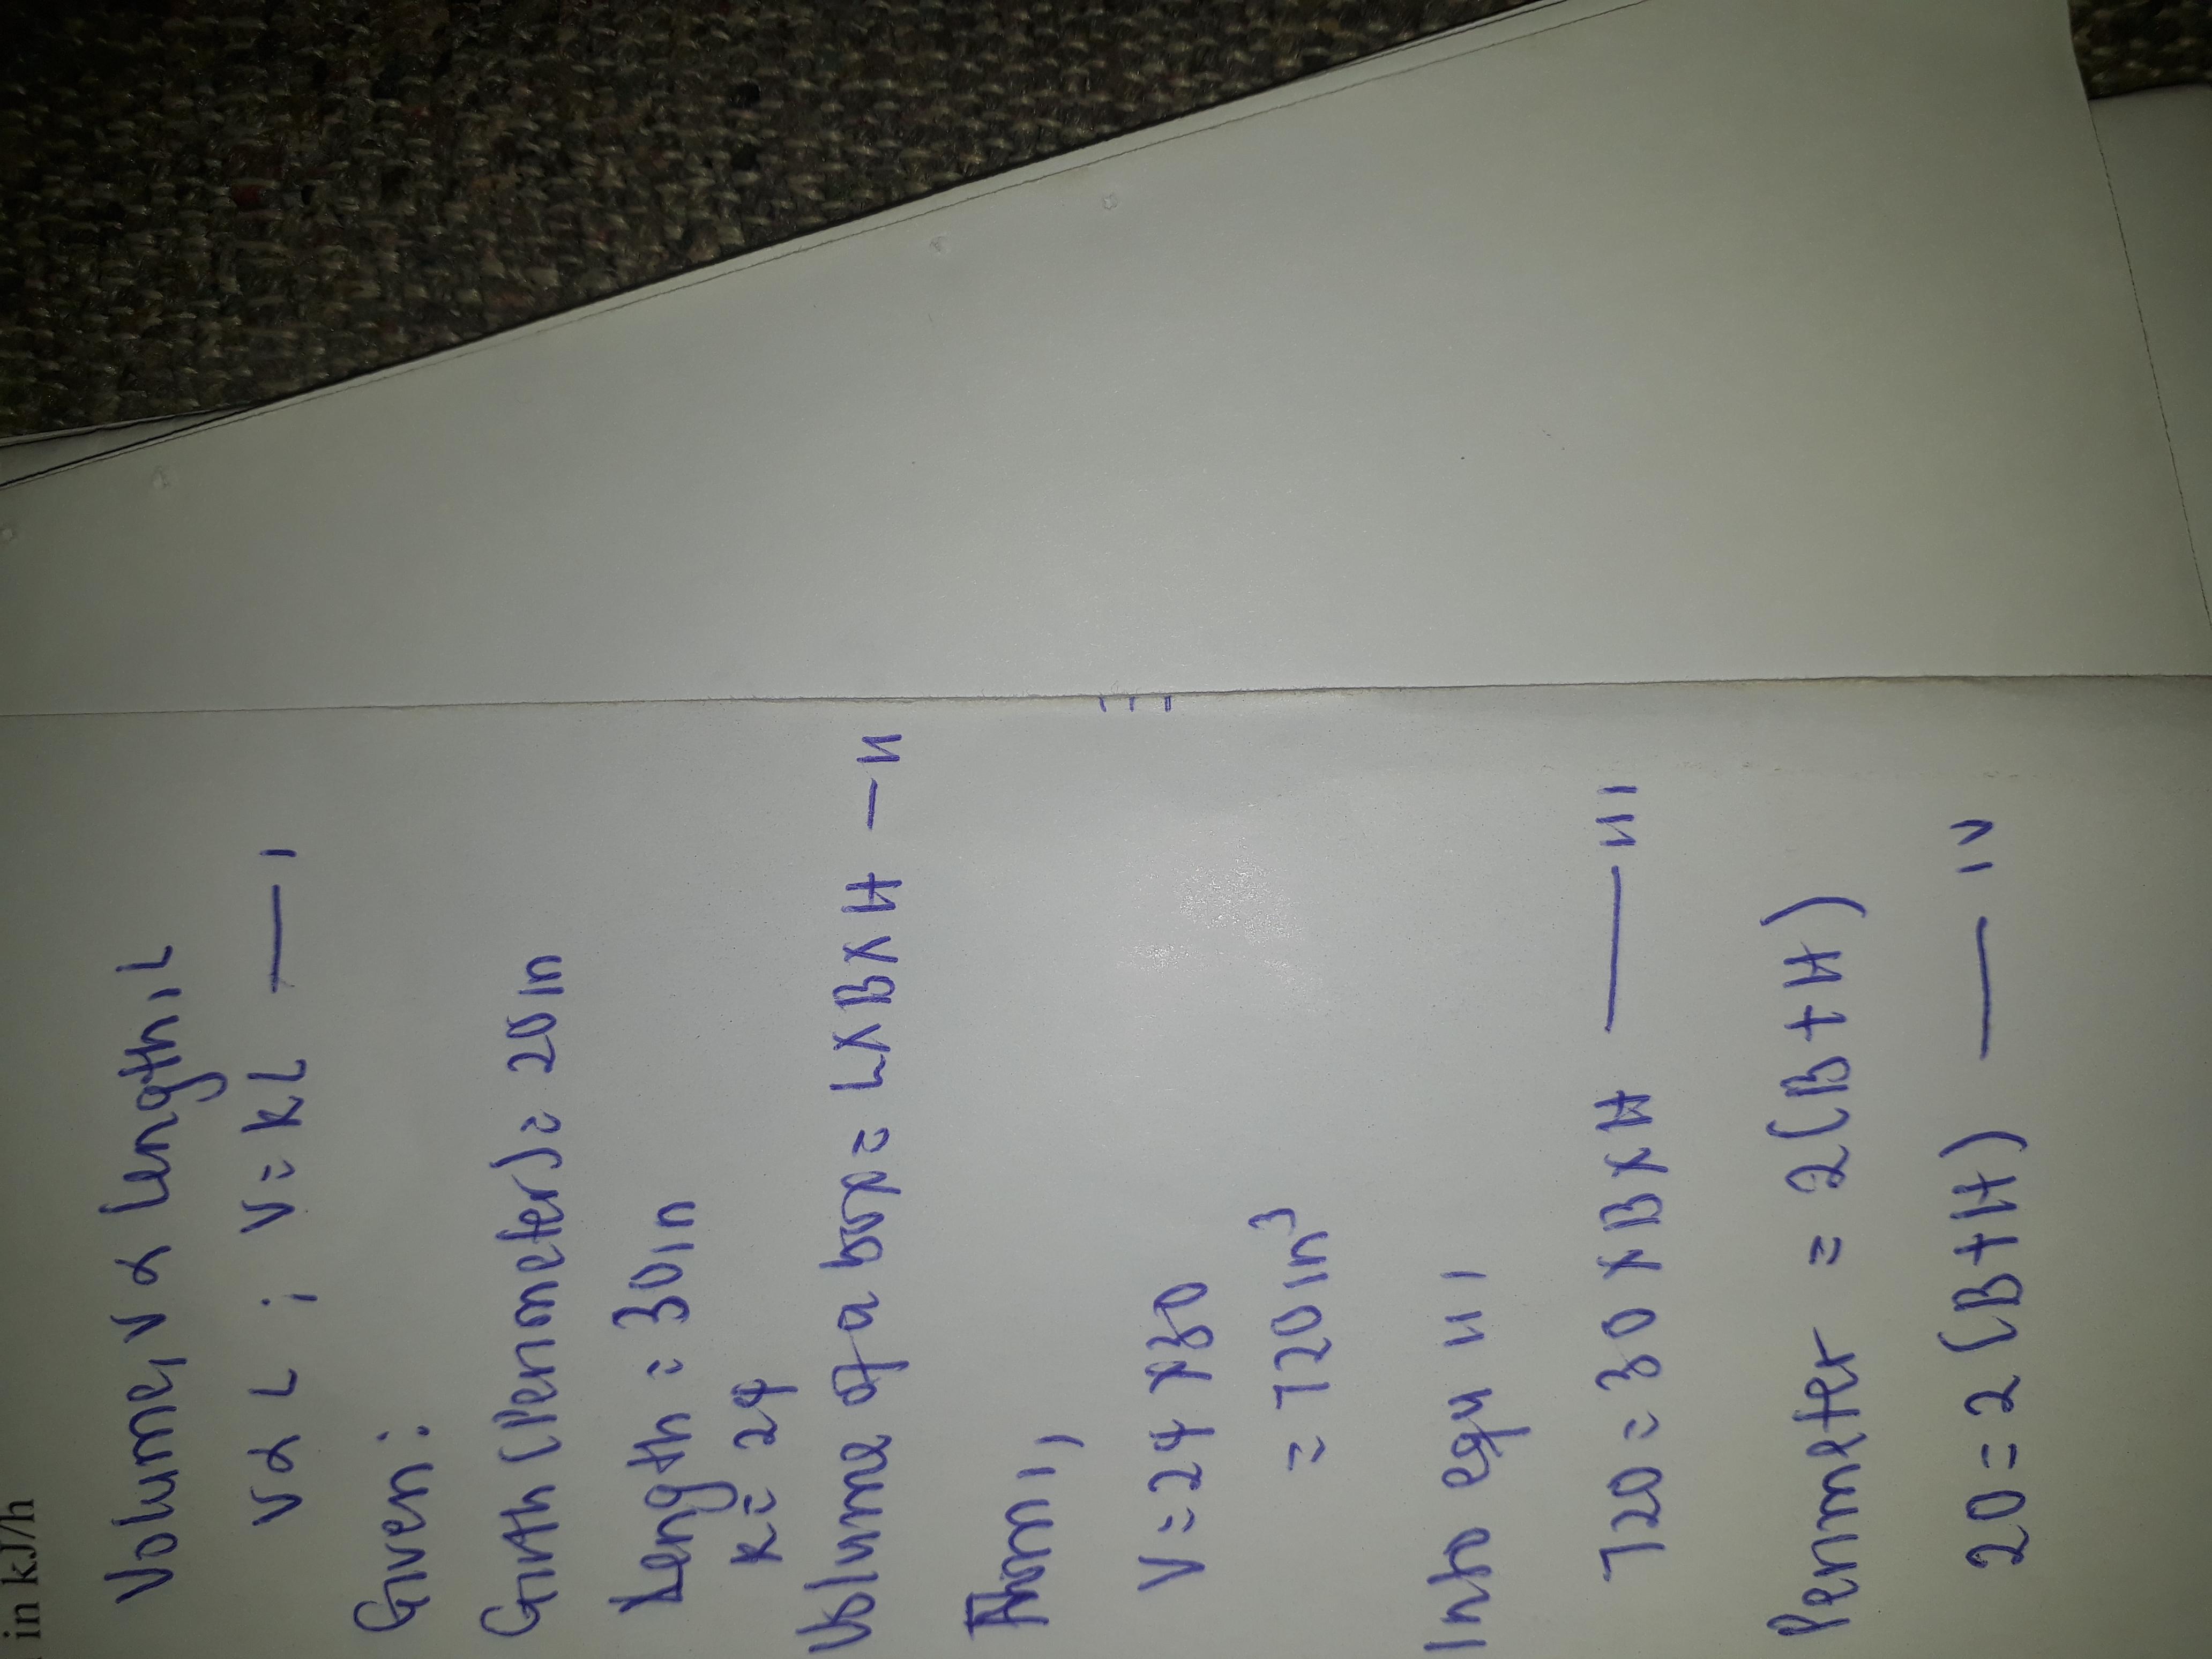 in kJ/h
Volume, V α length, L
V α L ; V = KL — i
Given:
Girth (Perimeter) = 20in
Length = 30in
K = 24
Volume of a box = L x B x H — ii
From i,
V = 24 x 30
= 720in³
Into eqn ii,
720 = 30 x B x H — iii
Perimeter = 2(B+H)
20 = 2(B+H) — iv